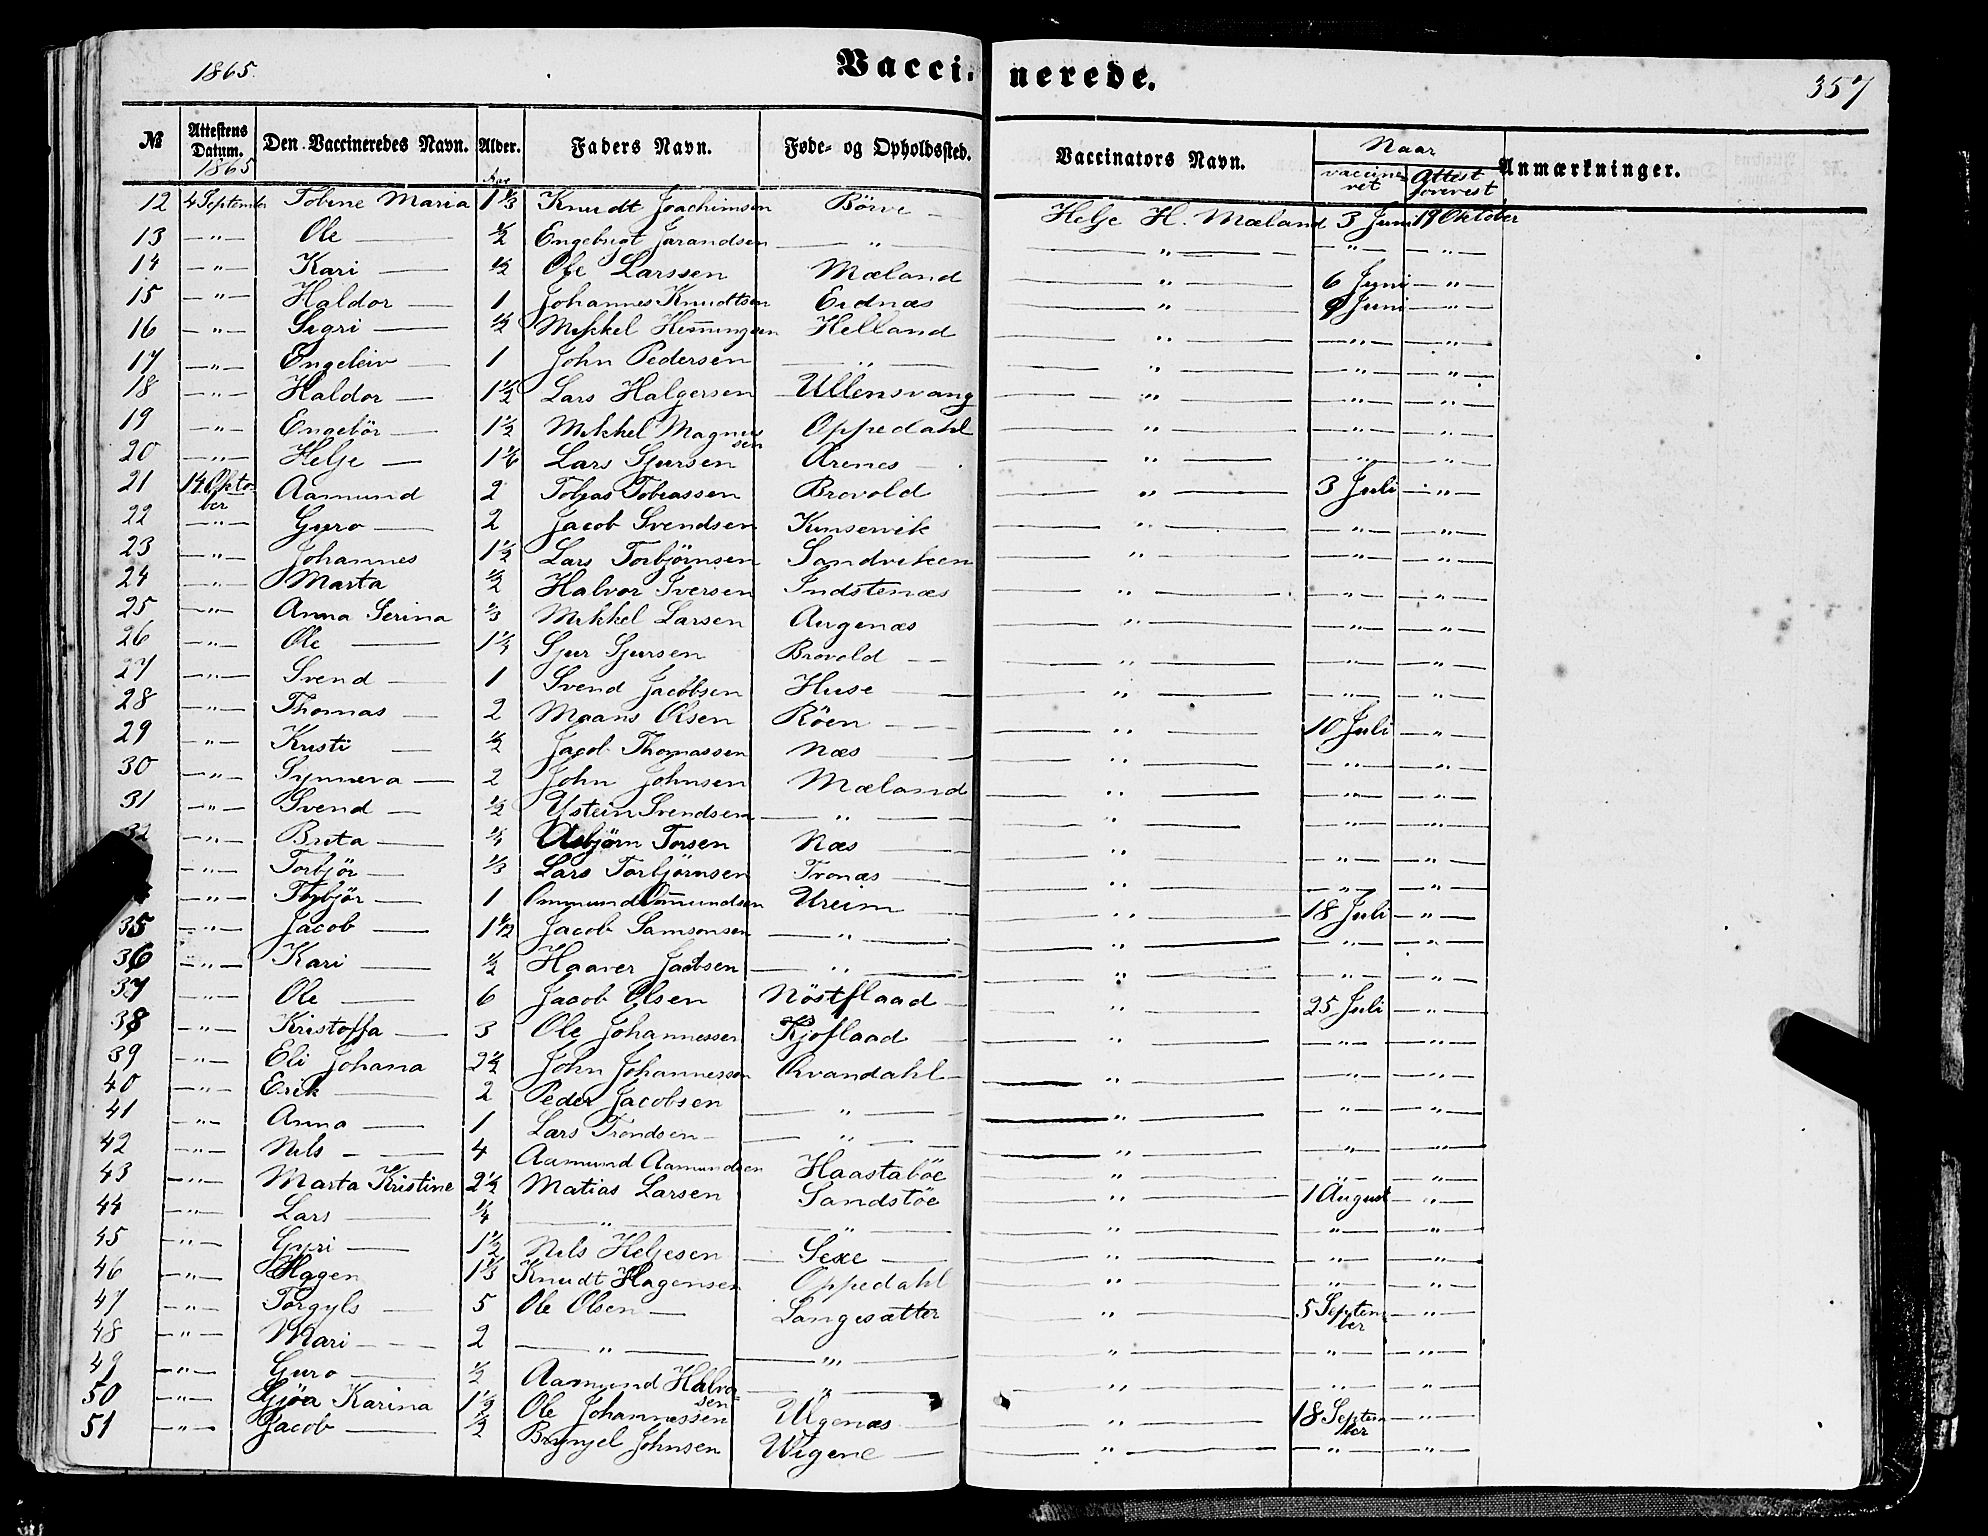 1865.
Vaccinerede.
357
№ | Attestens Datum. 1865 | Den Vaccineredes Navn. | Alder. Aar | Faders Navn. | Føde- og Opholdssted. | Vaccinators Navn. | Naar vaccineret | Attest forevist | Anmærkninger.
12 | 4 September | Tobine Maria | 1 1/3 | Knudt Joachimsen | Börve — | Helje H. Mæland | 3 Juni | 19 Oktober
13 | —„— | Ole — | 1/2 | Engebrigt Jarandsen | —„— | —„— | —„— | —„—
14 | —„— | Kari — | 1/2 | Ole Larssen | Mæland | —„— | 6 Juni | —„—
15 | —„— | Haldor — | 1 | Johannes Knudtsen | Eidnæs | —„— | 9 Juni | —„—
16 | —„— | Sigri — | 1/2 | Mikkel Hemingsen | Helland | —„— | —„— | —„—
17 | —„— | Engeleiv — | 1 | John Pedersen | —„— | —„— | —„— | —„—
18 | —„— | Haldor — | 1 1/2 | Lars Halgersen | Ullensvang | —„— | —„— | —„—
19 | —„— | Engebör — | 1 1/2 | Mikkel Magnussen | Oppedahl | —„— | —„— | —„—
20 | —„— | Helje — | 1 1/6 | Lars Sjursen | Arenes | —„— | —„— | —„—
21 | 14 Oktober | Aamund | 2 | Tobias Tobiassen | Brovold | —„— | 3 Juli | —„—
22 | —„— | Gyro — | 2 | Jacob Svendsen | Kinservik | —„— | —„— | —„—
23 | —„— | Johannes | 1 1/2 | Lars Torbjörnsen | Sandviken | —„— | —„— | —„—
24 | —„— | Marta | 1/2 | Halvor Iversen | Indstenæs | —„— | —„— | —„—
25 | —„— | Anna Serina | 1/3 | Mikkel Larsen | Augenæs | —„— | —„— | —„—
26 | —„— | Ole — | 1 1/4 | Sjur Sjursen | Brovold — | —„— | —„— | —„—
27 | —„— | Svend — | 1 | Svend Jacobsen | Huse — | —„— | —„— | —„—
28 | —„— | Thomas — | 2 | Maans Olsen | Röen — | —„— | 10 Juli | —„—
29 | —„— | Kristi — | 1/2 | Jacob Thomassen | Næs — | —„— | —„— | —„—
30 | —„— | Synneva — | 2 | John Johnsen | Mæland | —„— | —„— | —„—
31 | —„— | Svend — | 1/2 | Ystein Svendsen | —„— | —„— | —„— | —„—
32 | —„— | Brita — | 1/4 | Asbjörn Torsen | Næs — | —„— | —„— | —„—
—„— | Torbjör — | 1/3 | Lars Torbjörnsen | Tronæs — | —„— | —„— | —„—
—„— | Torbjör — | 1 | Ommund Ommundsen | Ureim — | —„— | 18 Juli | —„—
35 | —„— | Jacob — | 1 1/2 | Jacob Samsonsen | —„— | —„— | —„— | —„—
36 | —„— | Kari — | 1/2 | Haaver Jacobsen | —„— | —„— | —„— | —„—
37 | —„— | Ole — | 6 | Jacob Olsen | Nöstflaad — | —„— | 25 Juli | —„—
38 | —„— | Kristoffa — | 3 | Ole Johannessen | Kjoflaad — | —„— | —„— | —„—
39 | —„— | Eli Johana | 2 1/2 | John Johannessen | Qvandahl — | —„— | —„— | —„—
40 | —„— | Erik — | 2 | Peder Jacobsen | —„— | —„— | —„— | —„—
41 | —„— | Anna — | 1 | Lars Trondsen — | —„— | —„— | —„— | —„—
42 | —„— | Nils — | 4 | Aamund Aamundsen | Haastaböe | —„— | —„— | —„—
43 | —„— | Marta Kristine | 2 1/2 | Matias Larsen | Sandstöe | —„— | 1 August | —„—
44 | —„— | Lars — | 1/4 | —„— | —„— | —„— | —„— | —„—
45 | —„— | Gyri — | 1 1/2 | Nils Heljesen | — Sexe — | —„— | —„— | —„—
46 | —„— | Hagen | 1 1/3 | Knudt Hagensen | Oppedahl | —„— | —„— | —„—
47 | —„— | Torgyls — | 5 | Ole Olsen — | Langesætter | —„— | 5 September | —„—
48 | —„— | Mari — | 2 | —„— | —„— | —„— | —„— | —„—
49 | —„— | Guro — | 1/2 | Aamund Halvorsen | —„— | —„— | —„— | —„—
50 | —„— | Gjöa Karina | 1 1/2 | Ole Johannessen | Ulgenæs — | —„— | 18 September | —„—
51 | —„— | Jacob — | 1/2 | Brynjel Johnsen | Wigene — | —„— | —„— | —„—